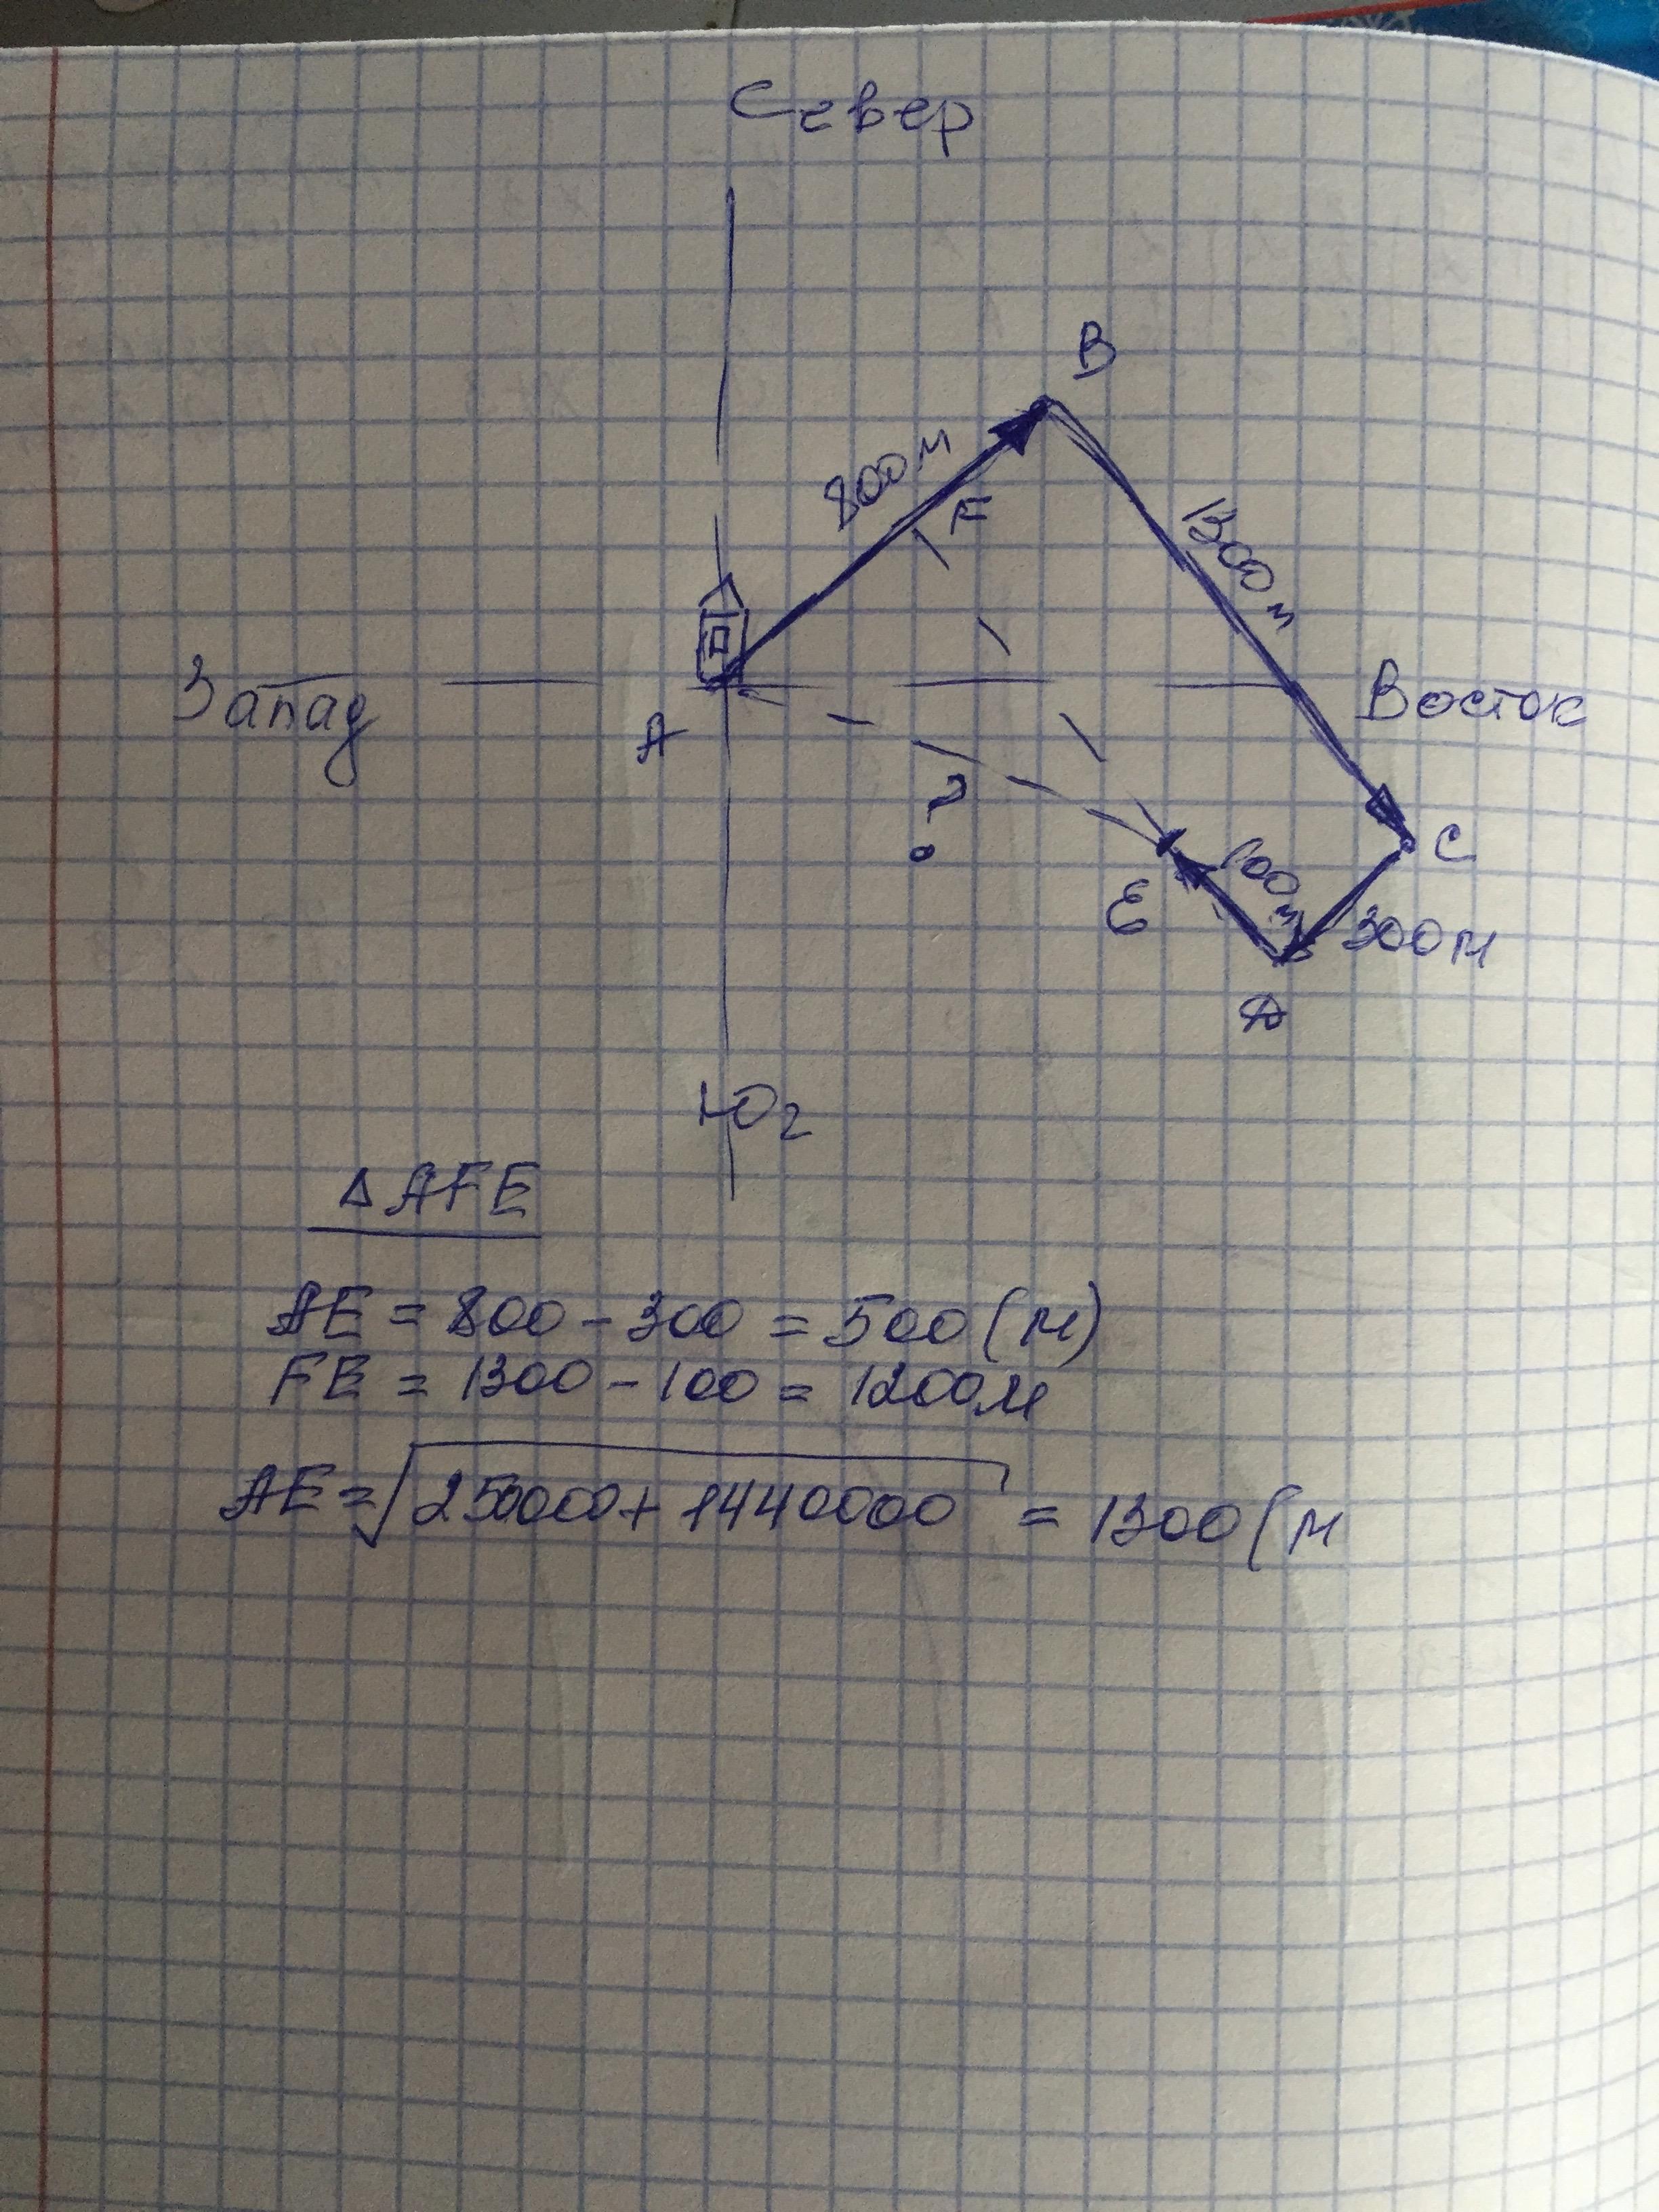 Север
B
800м
F
1300м
Запад
Восток
A
?
C
E
100м
300м
D
Юг
Δ AFE
AE = 800 - 300 = 500 (м)
FE = 1300 - 100 = 1200м
AE = √250000 + 1440000 = 1300 (м